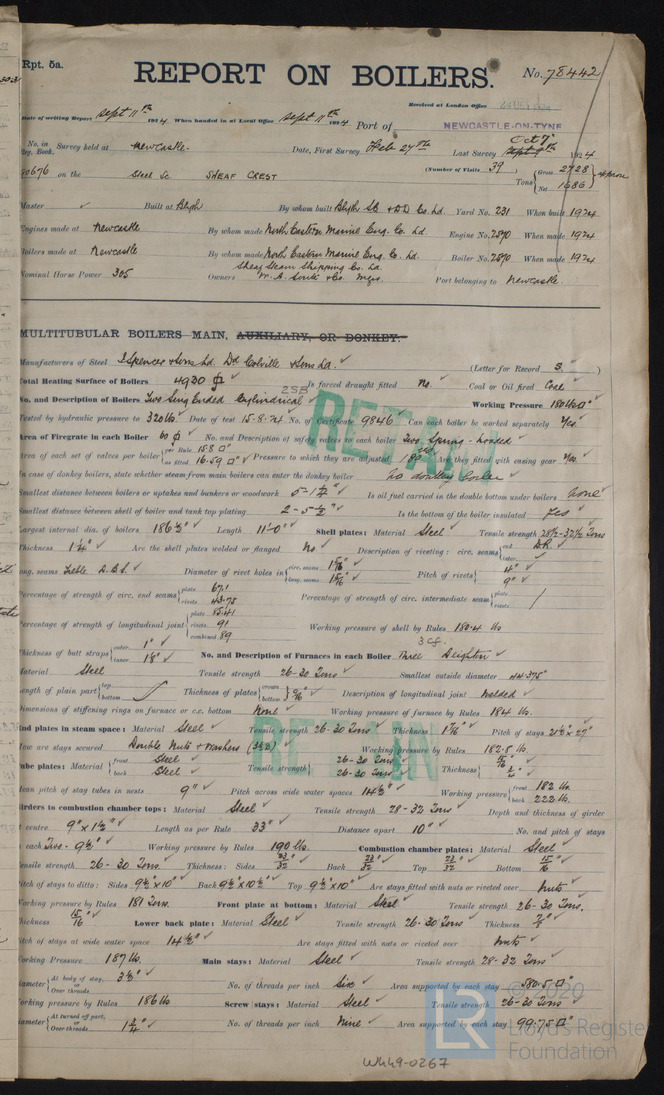 Rpt. 5a.
REPORT ON BOILERS.
No. 78442
Received at London Office
Date of writing Report Sept 11th 1924 When handed in at Local Office Sept 11th 1924 Port of NEWCASTLE-ON-TYNE
No. in Reg. Book. Survey held at Newcastle. Date, First Survey Feb 27th Last Survey Sept 9th Oct 7 1924
(Number of Visits 39)
on the Steel Sc SHEAF CREST Tons { Gross 2728 Net 1686 } approx
Master ✓ Built at Blyth By whom built Blyth SB & DD Co. Ld. Yard No. 231 When built 1924
Engines made at Newcastle By whom made North Eastern Marine Eng. Co. Ld. Engine No. 2870 When made 1924
Boilers made at Newcastle By whom made North Eastern Marine Eng. Co. Ld. Boiler No. 2870 When made 1924
Nominal Horse Power 305 Owners Sheaf Steam Shipping Co. Ld. W. A. Souter & Co. Mgrs. Port belonging to Newcastle.
MULTITUBULAR BOILERS MAIN, AUXILIARY, OR DONKEY.
Manufacturers of Steel J Spencer & Sons Ld. Dd Colville & Sons Ld. ✓ (Letter for Record S. ✓)
Total Heating Surface of Boilers 4930 Is forced draught fitted No. ✓ Coal or Oil fired Coal
2SB
No. and Description of Boilers Two Sing Ended Cylindrical Working Pressure 180 lbs
Tested by hydraulic pressure to 320 lbs. ✓ Date of test 15-8-24 No. of Certificate 9846 ✓ Can each boiler be worked separately Yes ✓
RETAIN
Area of Firegrate in each Boiler 60 No. and Description of safety valves to each boiler Two Spring-Loaded ✓
Area of each set of valves per boiler { per Rule 15.8 □" as fitted 16.59 □" ✓ Pressure to which they are adjusted 180 Are they fitted with easing gear Yes. ✓
In case of donkey boilers, state whether steam from main boilers can enter the donkey boiler No donkey boiler ✓
Smallest distance between boilers or uptakes and bunkers or woodwork Is oil fuel carried in the double bottom under boilers None ✓
Smallest distance between shell of boiler and tank top plating 2-5½" ✓ Is the bottom of the boiler insulated Yes ✓
Largest internal dia. of boilers 186½" ✓ Length 11'-0" ✓ Shell plates: Material Steel ✓ Tensile strength 28½-32½ Tons
Thickness ✓ Are the shell plates welded or flanged No ✓ Description of riveting: circ. seams { end D.R. ✓ inter. ✓
long. seams Treble D.B.S. ✓ Diameter of rivet holes in { circ. seams long. seams Pitch of rivets { 4" ✓ 9" ✓
Percentage of strength of circ. end seams { plate 67.1 rivets 43.75 Percentage of strength of circ. intermediate seam { plate rivets /
Percentage of strength of longitudinal joint { plate 85.41 rivets 91 combined 89 Working pressure of shell by Rules 180.4 lbs
Thickness of butt straps { outer 1" ✓ inner 1⅛" ✓ 3 cf. No. and Description of Furnaces in each Boiler Three Deighton ✓
Material Steel Tensile strength 26-30 Tons ✓ Smallest outside diameter 44.375" ✓
Length of plain part { top bottom Thickness of plates { crown bottom Description of longitudinal joint Welded ✓
Dimensions of stiffening rings on furnace or c.c. bottom None ✓ Working pressure of furnace by Rules 184 lbs.
RETAIN
End plates in steam space: Material Steel ✓ Tensile strength 26-30 Tons ✓ Thickness Pitch of stays 21½" x 27"
How are stays secured Double Nuts & Washers ✓ Working pressure by Rules 182.8 lbs. ✓
Tube plates: Material { front Steel ✓ back Steel ✓ Tensile strength { 26-30 Tons ✓ 26-30 Tons ✓ Thickness { 15/16 ✓ ¾" ✓
Mean pitch of stay tubes in nests 9" ✓ Pitch across wide water spaces 14½" ✓ Working pressure { front 182 lbs. back 222 lbs.
Girders to combustion chamber tops: Material Steel ✓ Tensile strength 28-32 Tons ✓ Depth and thickness of girder
at centre 9" x 1½" ✓ Length as per Rule 33" Distance apart 10" ✓ No. and pitch of stays
in each Two-9½" ✓ Working pressure by Rules 190 lbs. Combustion chamber plates: Material Steel ✓
Tensile strength 26-30 Tons ✓ Thickness: Sides 23/32" Back 23/32" ✓ Top 23/32" ✓ Bottom 15/16 ✓
Pitch of stays to ditto: Sides 9½" x 10" ✓ Back 9½" x 10½" ✓ Top 9½" x 10" ✓ Are stays fitted with nuts or riveted over Nuts ✓
Working pressure by Rules 181 Front plate at bottom: Material Steel ✓ Tensile strength 26-30 Tons.
Thickness 15/16 ✓ Lower back plate: Material Steel ✓ Tensile strength 26-30 Tons ✓ Thickness ⅞" ✓
Pitch of stays at wide water space 14½" ✓ Are stays fitted with nuts or riveted over Nuts ✓
Working Pressure 187 lbs. Main stays: Material Steel ✓ Tensile strength 28-32 Tons ✓
Diameter { At body of stay, or Over threads 3½" ✓ No. of threads per inch Six ✓ Area supported by each stay 580.5 □" ✓
Working pressure by Rules 186 lbs Screw stays: Material Steel ✓ Tensile strength 26-30 Tons ✓
Diameter { At turned off part, or Over threads 1¾" ✓ No. of threads per inch Nine ✓ Area supported by each stay 99.75 □" ✓
© 2020
LR
Lloyd's Register
Foundation
W449-0267